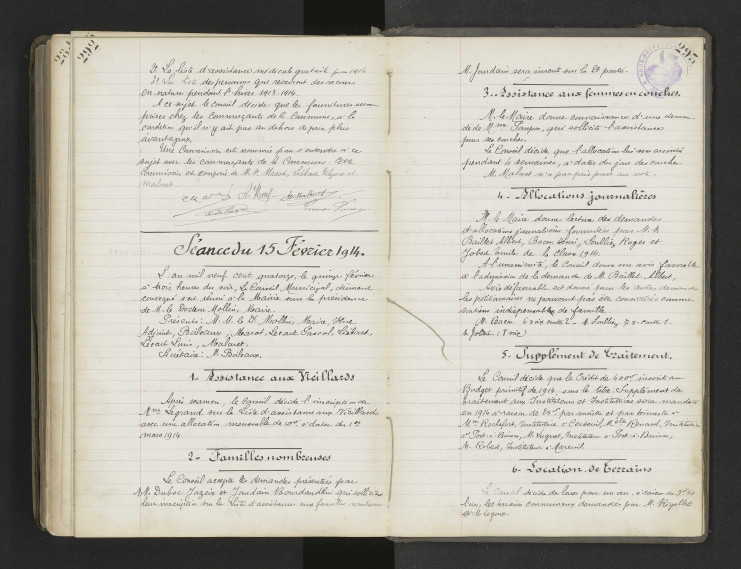 292
2° La liste d'assistance médicale gratuite pour 1914
3° La liste des personnes que recevront des secours
en nature pendant l'hiver 1913-1914.
A ce sujet le Conseil décide que les fournitures seront
prises chez les Commerçants de la Commune, à la
condition qu'il n'y ait pas en dehors de prix plus
avantageux.
Une Commission est nommée pour s'entendre à ce
sujet avec les commerçants de la Commune. Cette
Commission est composée de M.M. Marot,
Malaret.
Séance du 15 Février 1914.
L'an mil neuf cent quatorze, le quinze février
à trois heures du soir, le Conseil Municipal, dûment
convoqué s'est réuni à la Mairie sous la présidence
de M. le Docteur Mollin, Maire.
Présents : M.M. le Dr Mollin, Maire,
Adjoint, Marot, Lecart Pascal,
Lecart Louis, Malaret.
Secrétaire : M.
1. Assistance aux Vieillards
Après examen, le Conseil décide l'inscription de
Mme Legrand sur la Liste d'assistance aux Vieillards
avec une allocation mensuelle de 10f à dater du 1er
mars 1914
2- Familles nombreuses
Le Conseil accepte les demandes présentées par
M.M. Duboc et Jourdain qui sollicitent
leur inscription sur la liste d'assistance aux familles nombreuses
293
M. Jourdain sera inscrit sur la 2e partie.
3.- Assistance aux femmes en couches.
M. le Maire donne connaissance d'une demande
de Mme qui sollicite l'assistance
pour ses couches.
Le Conseil décide que l'allocation lui sera accordée
pendant 4 semaines, à dater du jour des couches.
M. Malaret n'a pas pris part au vote.
4- Allocations journalières
M. le Maire donne lecture des demandes
d'allocations journalières formulées par M.M.
Baillet Albert, Bacon Rémi, Soullier Roger et
Jobert Emile de la Classe 1914.
A l'unanimité, le Conseil donne un avis favorable
à l'admission de la demande de M. Baillet Albert,
Avis défavorable est donné pour les autres demandes
les pétitionnaires ne pouvant pas être considérés comme
soutiens indispensables de famille.
M. Bacon 6 voix contre 2 - 7 v. contre 1.
M. Jobert : 8 voix
5- Supplément de traitement.
Le Conseil décide que le Crédit de 400f inscrit au
Budget primitif de 1914, sous le titre : Supplément de
traitement aux Instituteurs et Institutrices sera mandaté
en 1914 à raison de 25f par maître et par trimestre à
Mme Rochefort, Institutrice à Mlle Renard, Institutrice
à Port à Binson, M. Huguet, Instituteur à Port à Binson,
M. Robert, Instituteur à Mareuil.
6- Location de terrains
Le Conseil décide de louer pour un an, à raison de
l'un, les terrains communaux demandés par M. Rigollet
et M. Legoux.